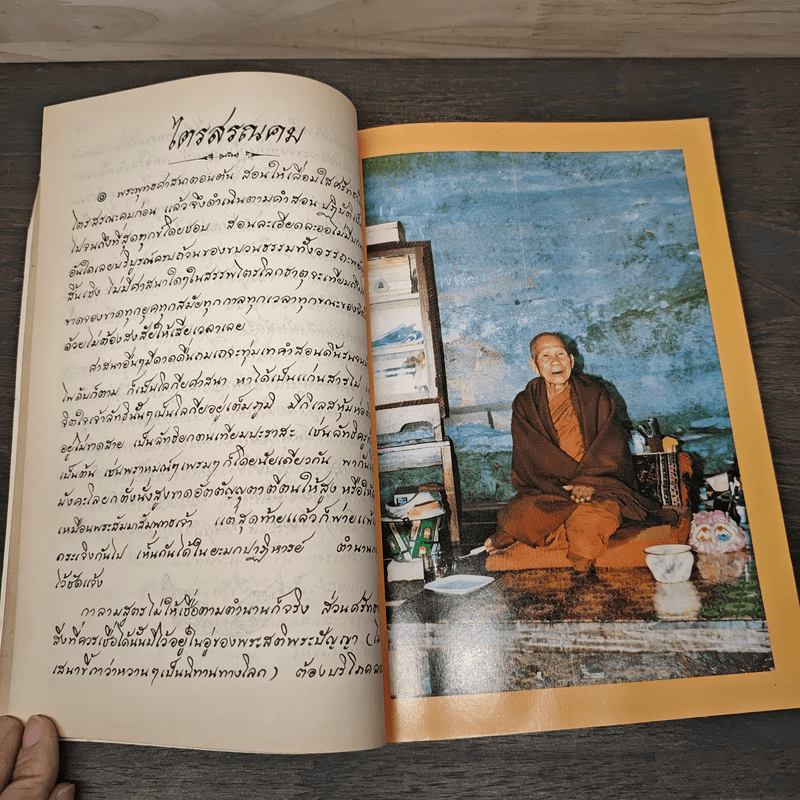 ไตรสรณคม
๑ พระพุทธศาสนาตอนต้น สอนให้เลื่อมใสศรัทธาใน
ไตรสรณะคมก่อน แล้วจึงดำเนินตามคำสอน ปฏิบัติ
ไปจนถึงที่สุดทุกข์โดยชอบ สอนละเอียดละออไม่มี
อันใดเลยบริบูรณ์ครบถ้วนของขบวนธรรมทั้งอรรถะ
สิ้นเชิง ไม่มีศาสนาใดๆในสรรพไตรโลกธาตุจะเทียม
ขาดจองขาดทุกยุคทุกสมัยทุกกาลทุกเวลาทุกขณะของ
ด้วยไม่ต้องสงสัยให้เสียเวลาเลย
ศาสนาอื่นๆมีดาดดื่นถมเถจะทุ่มเทคำสอนดิ้นรนจน
ไพลินก็ตาม ก็เป็นโลกีย์ศาสนา หาได้เป็นแก่นสารไม่
จิตใจเจ้าลัทธินั้นๆเป็นโลกีย์อยู่เต็มภูมิ มีกิเลสหุ้มห่อ
อยู่ไม่ขาดสาย เป็นลัทธิยกตนเทียมปะราสะ เช่นลัทธิครู
เป็นต้น เช่นพราหมณ์ๆเพรมๆก็โดยนัยเดียวกัน พากัน
มังคะโลยกตั้งนั่งสูงขาดอัตตัญญุตาตีตนให้สูง หรือให้
เหมือนพระสัมมาสัมพุทธเจ้า แต่สุดท้ายแล้วก็พ่ายแพ้
กระเจิงกันไป เห็นกันได้ในยะมกปาฏิหารย์ ตำนาน
ไว้ชัดแจ้ง
กาลามสูตรไม่ให้เชื่อตามตำนานก็จริง ส่วนศรัทธา
สิ่งที่ควรเชื่อได้นั้นมีไว้อยู่ในอู่ของพระสติพระปัญญา (
เสนาขี้กาว่าหวานๆเป็นนิทานทางโลก) ต้องบริโภค